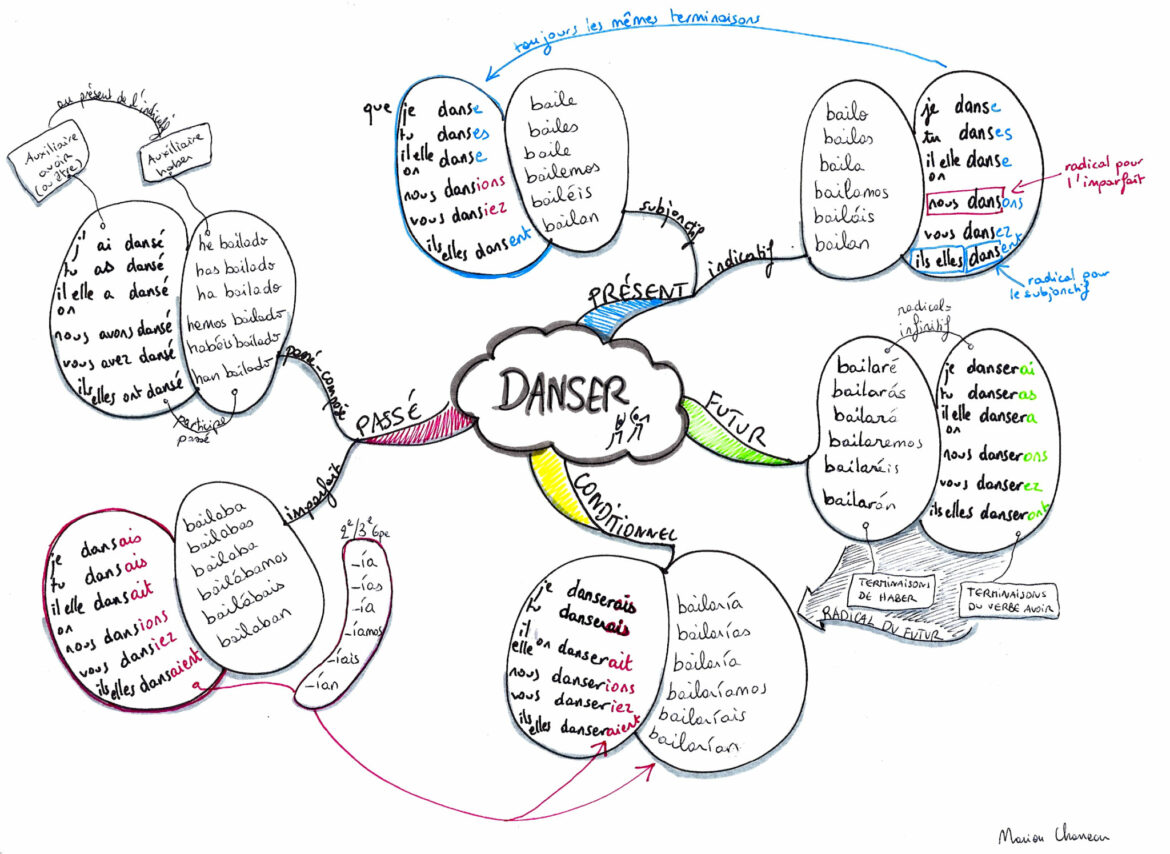 DANSER
PRÉSENT
subjonctif
que je danse
tu danses
il elle danse
on
nous dansions
vous dansiez
ils elles dansent
baile
bailes
baile
bailemos
bailéis
bailan
toujours les mêmes terminaisons
indicatif
bailo
bailas
baila
bailamos
bailáis
bailan
je danse
tu danses
il elle danse
on
nous dansons
vous dansez
ils elles dansent
radical pour
l'imparfait
radical pour
le subjonctif
FUTUR
radical =
infinitif
bailaré
bailarás
bailará
bailaremos
bailaréis
bailarán
je danserai
tu danseras
il elle dansera
on
nous danserons
vous danserez
ils elles danseront
TERMINAISONS
DE HABER
TERMINAISONS
DU VERBE AVOIR
RADICAL DU FUTUR
CONDITIONNEL
je danserais
tu danserais
il
elle on danserait
nous danserions
vous danseriez
ils
elles danseraient
bailaría
bailarías
bailaría
bailaríamos
bailaríais
bailarían
PASSÉ
passé-composé
au présent de l'indicatif
Auxiliaire
avoir
(ou être)
Auxiliaire
haber
j' ai dansé
tu as dansé
il elle a dansé
on
nous avons dansé
vous avez dansé
ils
elles ont dansé
he bailado
has bailado
ha bailado
hemos bailado
habéis bailado
han bailado
participe
passé
imparfait
je dansais
tu dansais
il elle dansait
on
nous dansions
vous dansiez
ils elles dansaient
bailaba
bailabas
bailaba
bailábamos
bailábais
bailaban
2e/3e Gpe
-ía
-ías
-ía
-íamos
-íais
-ían
Marion